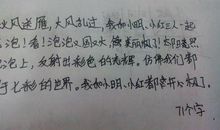 火风送屑，大风乱过，我如小明、小红三人一起
泡！看！泡泡又圆又大，美丽极了！太阳照
泡上，反射出彩色的光辉。仿佛我们都
于七彩的世界。我如小明、小红都开心极了。
71个字